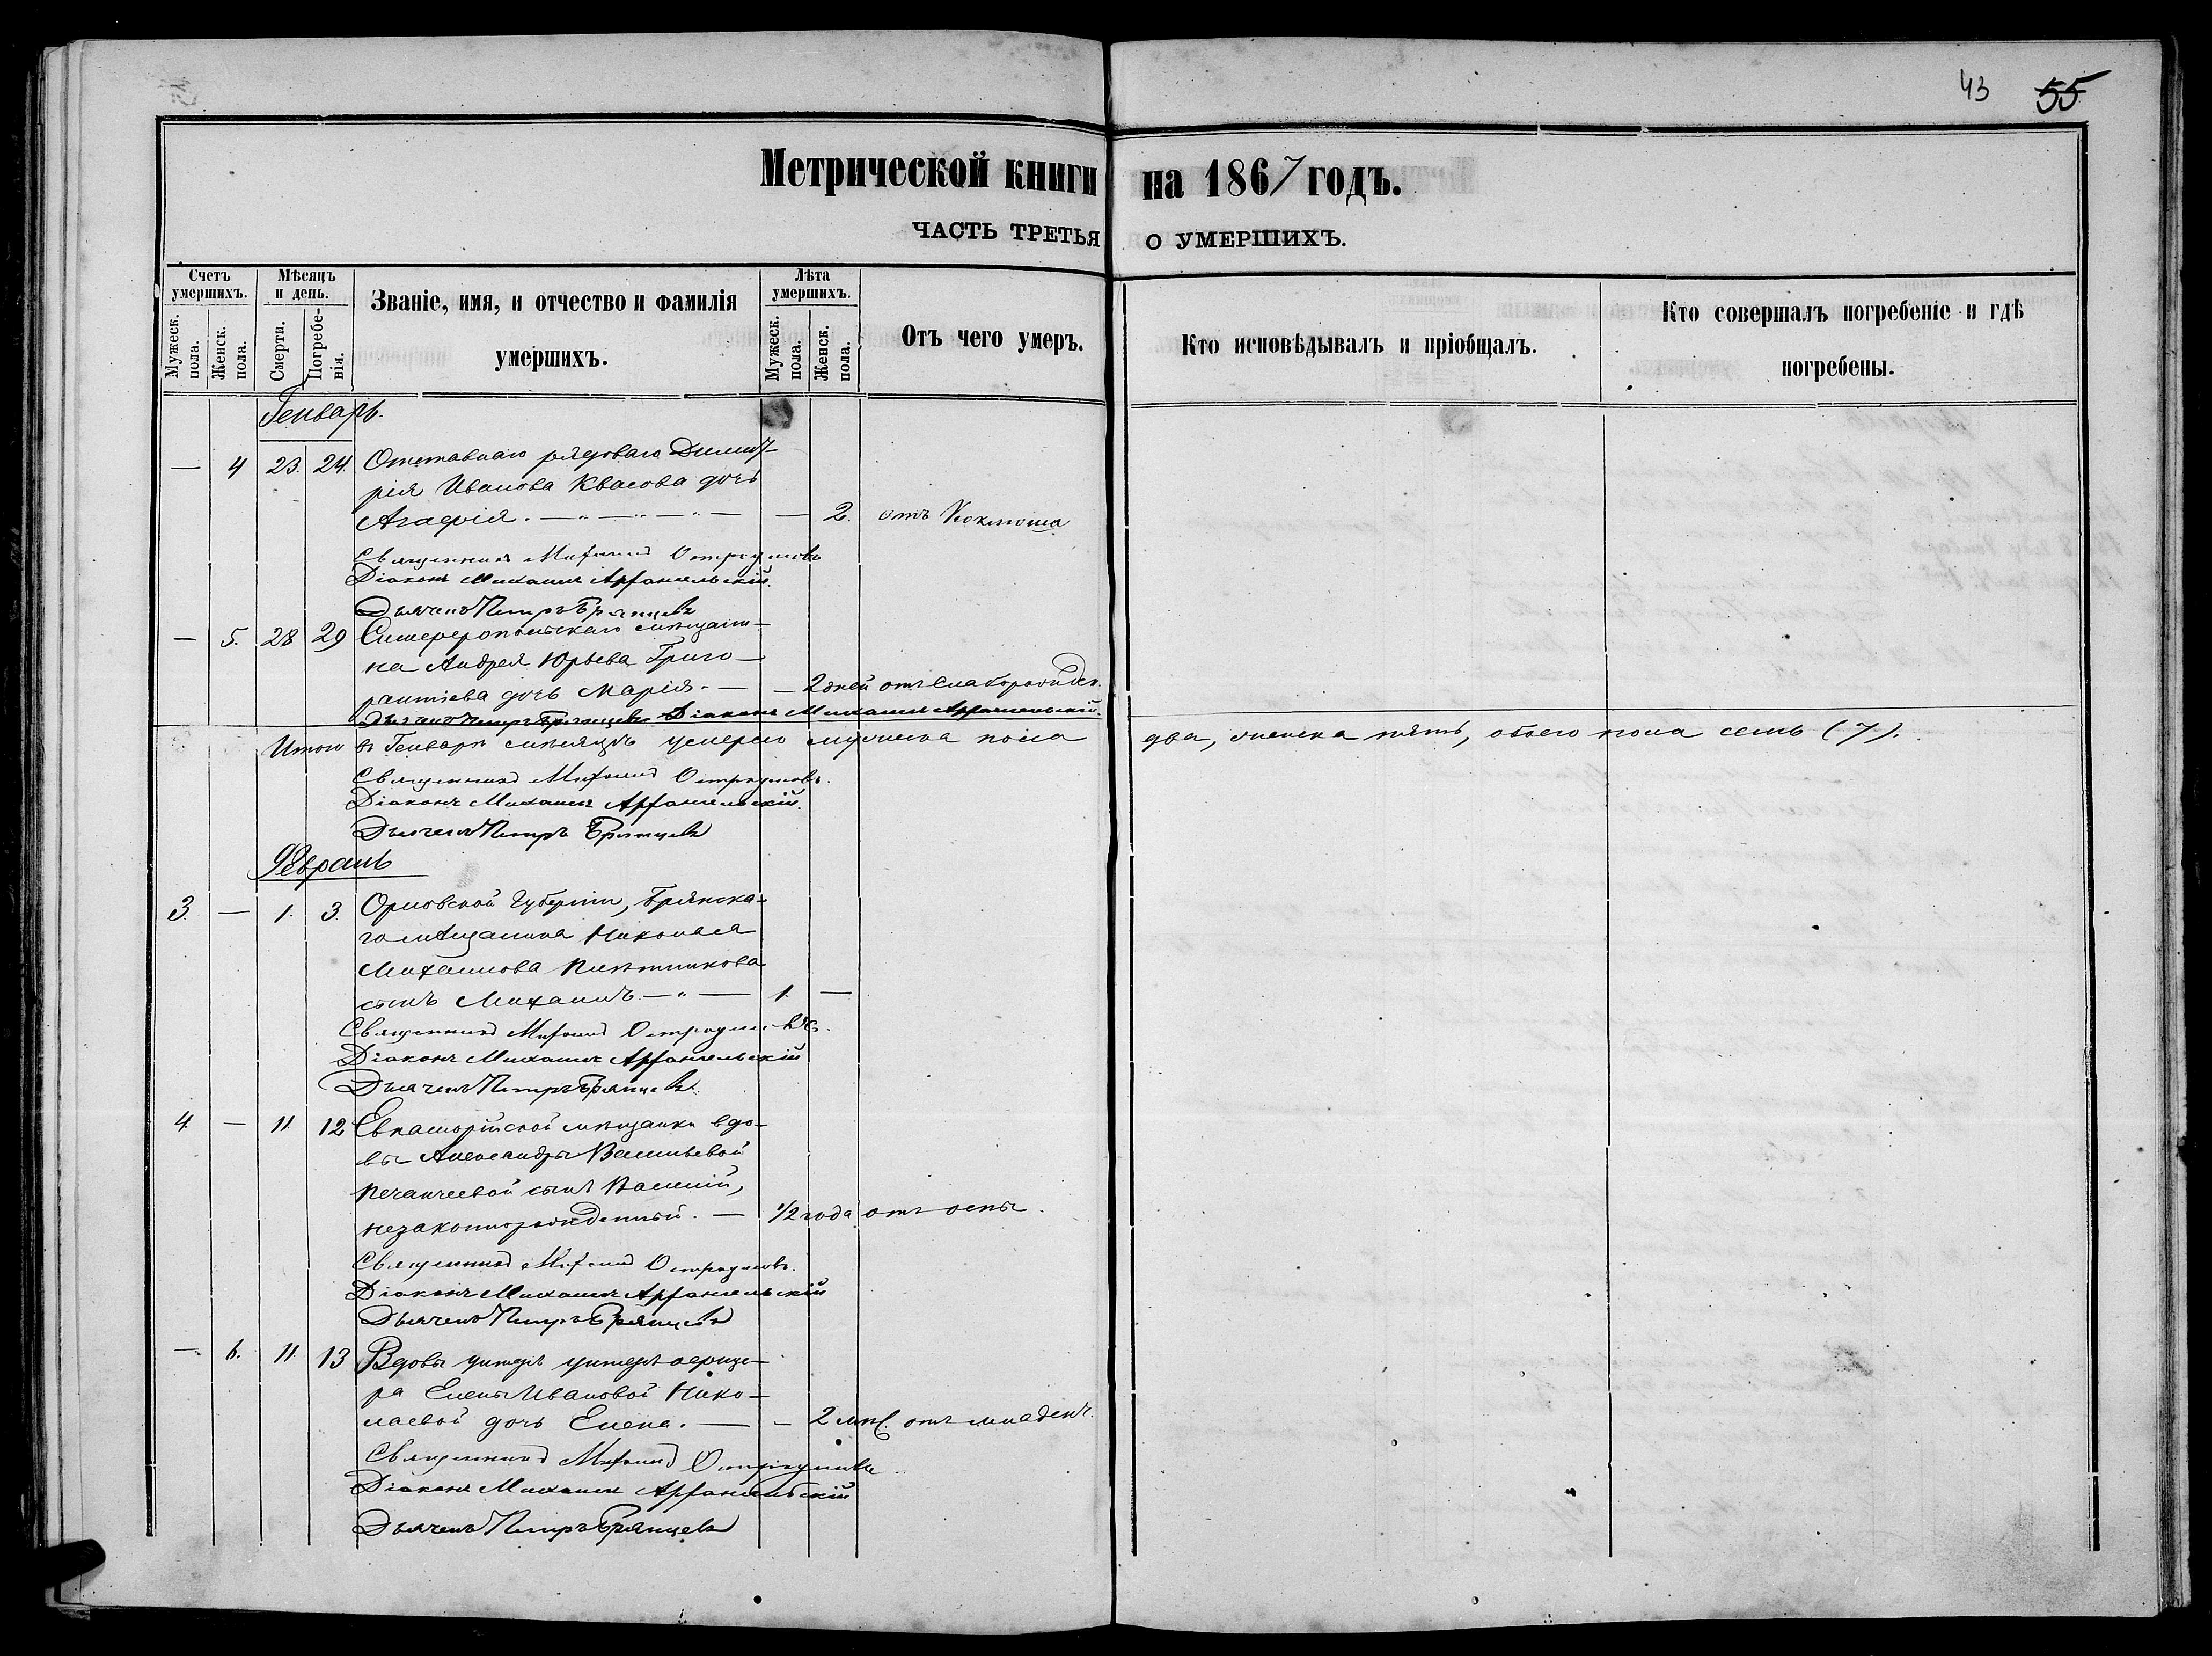 43 55
Метрической книги на 1867 годъ.
ЧАСТЬ ТРЕТЬЯ О УМЕРШИХЪ.
Счетъ умершихъ.
Мужеск. пола.
Женск. пола.
Мѣсяцъ и день.
Смерти.
Погребенія.
Званіе, имя, и отчество и фамилія умершихъ.
Лѣта умершихъ.
Мужеск. пола.
Женск. пола.
Отъ чего умеръ.
Кто исповѣдывалъ и пріобщалъ.
Кто совершалъ погребеніе и гдѣ погребены.
Генварь.
— 4 23. 24. Отставнаго рядоваго Димит-
рія Иванова Квасова дочь
Агафія. — „ — „ — „ — — 2. отъ Коклюша
Священникъ Остроумовъ
Діаконъ Михаилъ Архангельскій.
Дьячекъ Петръ Брянцевъ
— 5. 28 29 Симферопольскаго мѣщани-
на Андрея Юрьева Григо-
рантіева дочь Марія. — — 2 дней отъ слаборожден.
Дьячекъ Петръ Брянцевъ Діаконъ Михаилъ Архангельскій.
Итого въ Генварѣ мѣсяцѣ умерло мужеска пола два, женска пять, обоего пола семь (7).
Священникъ Остроумовъ.
Діаконъ Михаилъ Архангельскій.
Дьячекъ Петръ Брянцевъ
Февраль
3. — 1. 3. Орловской Губерніи, Брянска-
го мѣщанина Николая
Михаилова Плетникова
сынъ Михаилъ — „ — 1. —
Священникъ Остроумовъ.
Діаконъ Михаилъ Архангельскій
Дьячекъ Петръ Брянцевъ
4. — 11. 12 Евпаторійской мѣщанки вдо-
вы Александры Васильевой
сынъ Василій,
незаконнорожденный. — 1/2 года отъ оспы.
Священникъ Остроумовъ.
Діаконъ Михаилъ Архангельскій
Дьячекъ Петръ Брянцевъ
— 6. 11. 13 Вдовы унтеръ унтеръ офице-
ра Елены Ивановой Нико-
лаевой дочь Елена. — — 2 мѣс. отъ младенч.
Священникъ Остроумовъ.
Діаконъ Михаилъ Архангельскій
Дьячекъ Петръ Брянцевъ